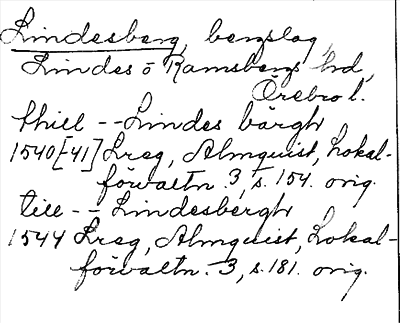 Lindesberg, bergslag,
Lindes o Ramsbergs hd,
Örebro l.
thill -- Lindes bärgh
1540[-41] Lreg, Almquist, Lokal-
förvaltn. 3, s. 154. orig.
till -- Lindesbergh
1544 Lreg, Almquist, Lokal-
förvaltn. 3, s. 181. orig.